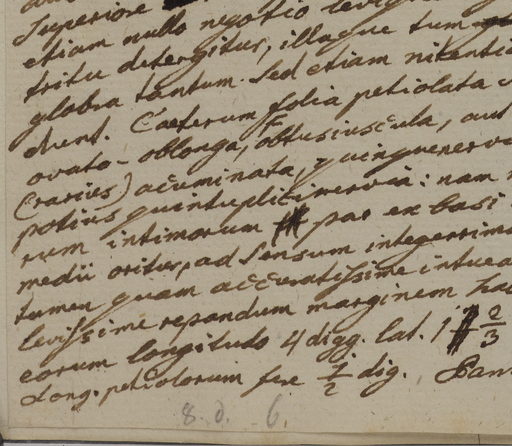 superiore
etiam nullo negotio levig
tritu detergitur, illaque tum
glabra tantum. Sed etiam nitentia
dunt. Caeterum folia petiolata
ovato-oblonga, obtusiuscula, aut
(rarius) acuminata, quinquenervia
potius quintuplicinervia: nam
rum intimorum par ex basi
medii oritur, ad sensum integerrima
tamen quam accuratissime intuea
levissime repandum marginem hab
eorum longitudo 4 digg. lat. 1 2/3
Long. petiolorum fere 1/2 dig., Pani
8. d. 6.